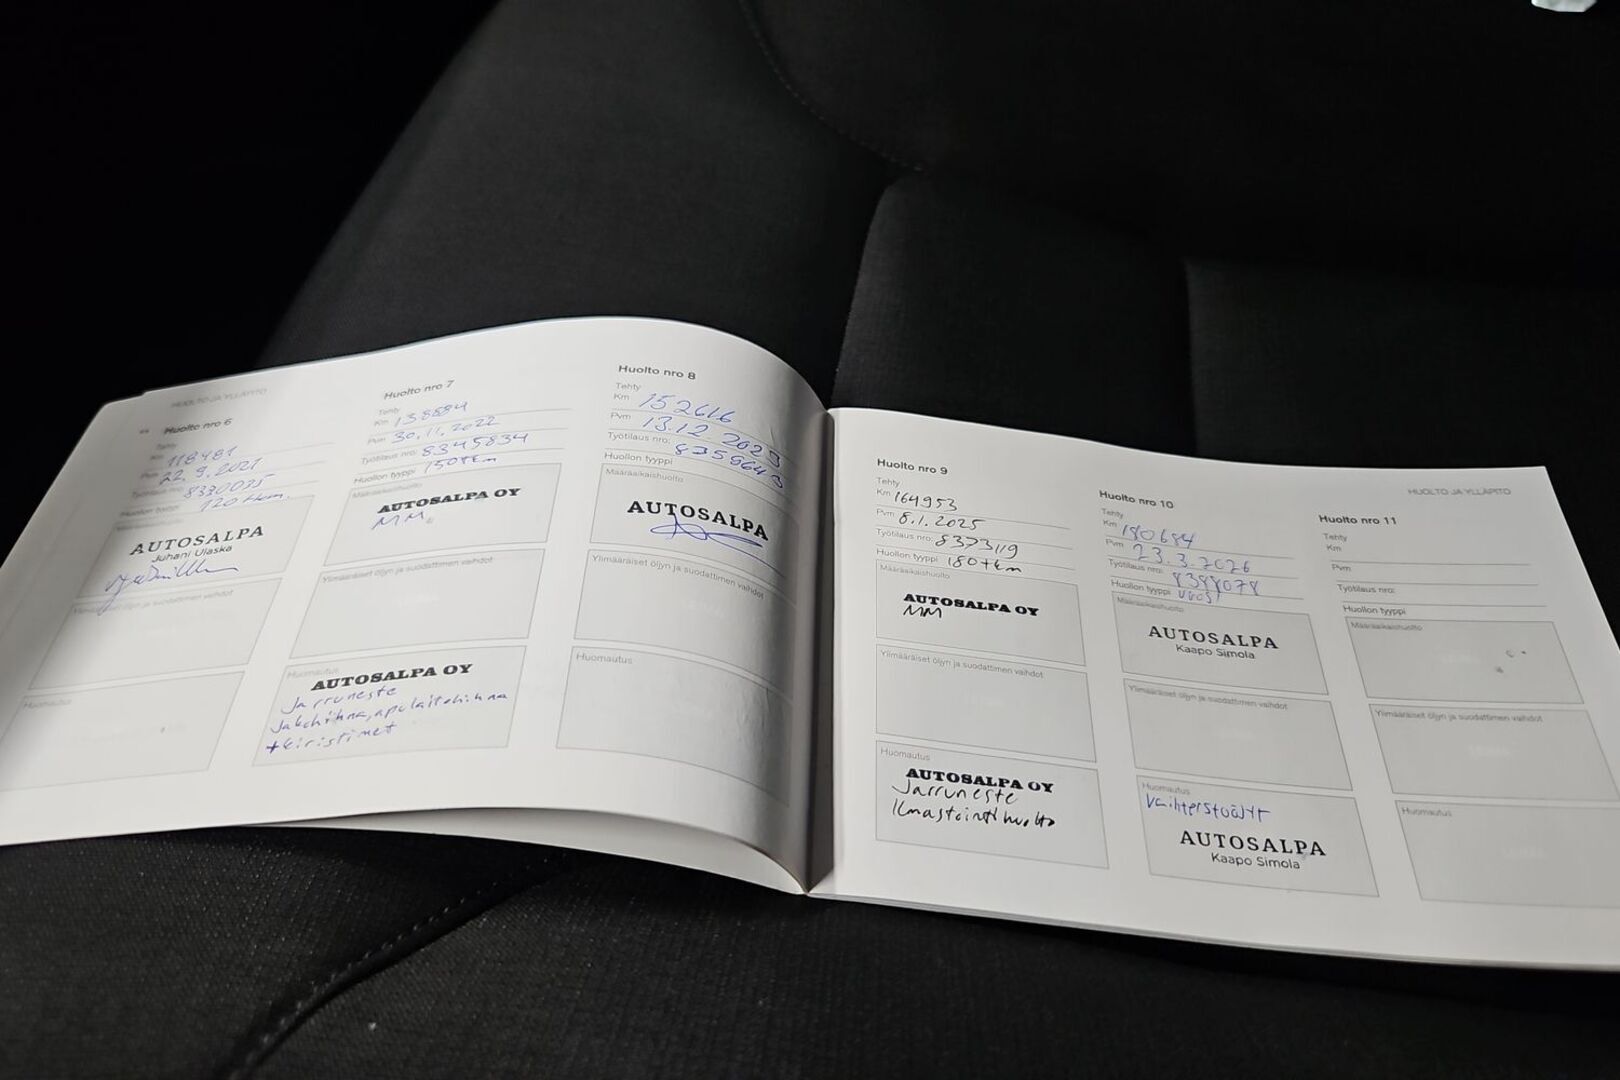 HUOLTO JA YLLÄPITO
Huolto nro 6
Tehty
Km 118481
Pvm 22.9.2021
Työtilaus nro: 8330035
Huollon tyyppi 120tkm.
Määräaikaishuolto
AUTOSALPA
Juhani Ulaska
Ylimääräiset öljyn ja suodattimen vaihdot
Huomautus
Huolto nro 7
Tehty
Km 138884
Pvm 30.11.2022
Työtilaus nro: 8345834
Huollon tyyppi 150tkm
Määräaikaishuolto
AUTOSALPA OY
MM
Ylimääräiset öljyn ja suodattimen vaihdot
Huomautus
AUTOSALPA OY
Jarruneste
Jakohihna, apulaitehihna
+kiristimet
Huolto nro 8
Tehty
Km 152616
Pvm 13.12.2023
Työtilaus nro:
Huollon tyyppi
Määräaikaishuolto
AUTOSALPA
Ylimääräiset öljyn ja suodattimen vaihdot
Huomautus
Huolto nro 9
Tehty
Km 164953
Pvm 8.1.2025
Työtilaus nro: 8373119
Huollon tyyppi 180tkm
Määräaikaishuolto
AUTOSALPA OY
MM
Ylimääräiset öljyn ja suodattimen vaihdot
Huomautus
AUTOSALPA OY
Jarruneste
Ilmastointihuolto
Huolto nro 10
Tehty
Km 180684
Pvm 23.3.2026
Työtilaus nro: 8398078
Huollon tyyppi vuosi
Määräaikaishuolto
AUTOSALPA
Kaapo Simola
Ylimääräiset öljyn ja suodattimen vaihdot
Huomautus
Vaihterstoöljyt
AUTOSALPA
Kaapo Simola
HUOLTO JA YLLÄPITO
Huolto nro 11
Tehty
Km
Pvm
Työtilaus nro:
Huollon tyyppi
Määräaikaishuolto
Ylimääräiset öljyn ja suodattimen vaihdot
Huomautus